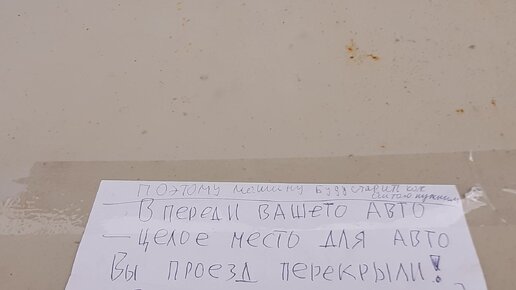 ПОЭТОМУ машину буду ставить как
считаю нужным
— ВПЕРЕДИ ВАШЕГО АВТО
— ЦЕЛОЕ МЕСТЬ ДЛЯ АВТО
ВЫ ПРОЕЗД ПЕРЕКРЫЛИ!